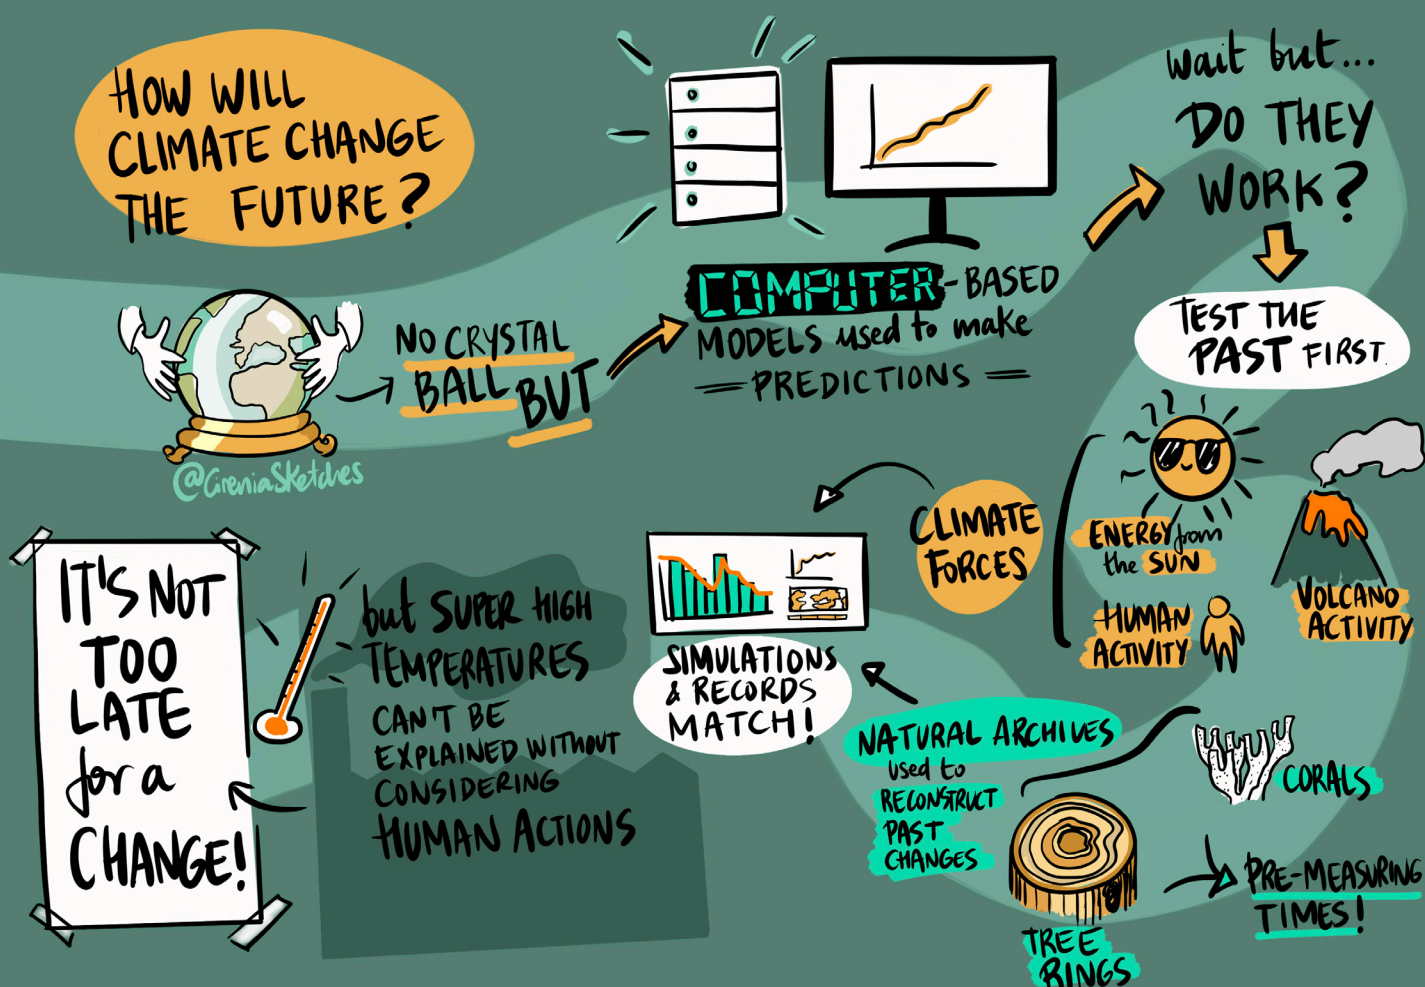 HOW WILL
CLIMATE CHANGE
THE FUTURE?
@CireniaSketches
NO CRYSTAL
BALL BUT
COMPUTER-BASED
MODELS used to make
PREDICTIONS
wait but...
DO THEY
WORK?
TEST THE
PAST FIRST
ENERGY from
the SUN
VOLCANO
ACTIVITY
HUMAN
ACTIVITY
CLIMATE
FORCES
NATURAL ARCHIVES
used to
RECONSTRUCT
PAST
CHANGES
CORALS
TREE
RINGS
PRE-MEASURING
TIMES!
SIMULATIONS
& RECORDS
MATCH!
but SUPER HIGH
TEMPERATURES
CAN'T BE
EXPLAINED WITHOUT
CONSIDERING
HUMAN ACTIONS
IT'S NOT
TOO
LATE
for a
CHANGE!